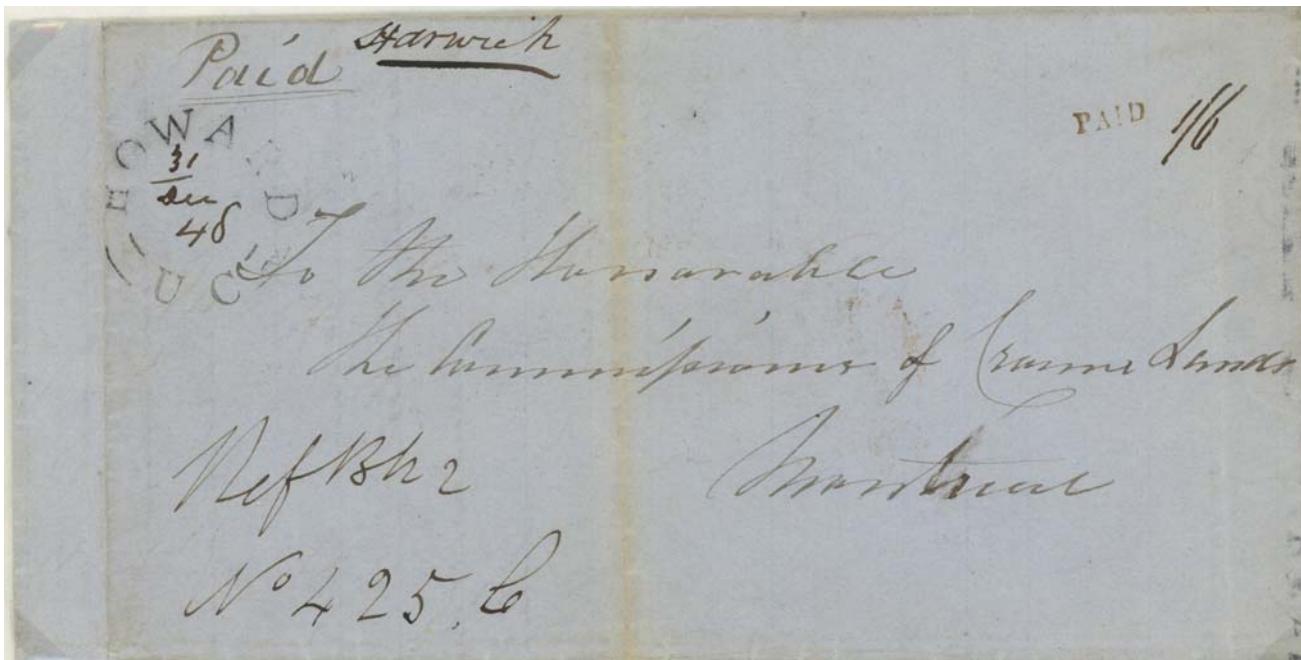 Paid Harwich
PAID 1/6
HOWARD U.C.
31
Dec
48
To the Honorable
The Commissioner of Crown Lands
Montreal
Ref Bh 2
No 425. C